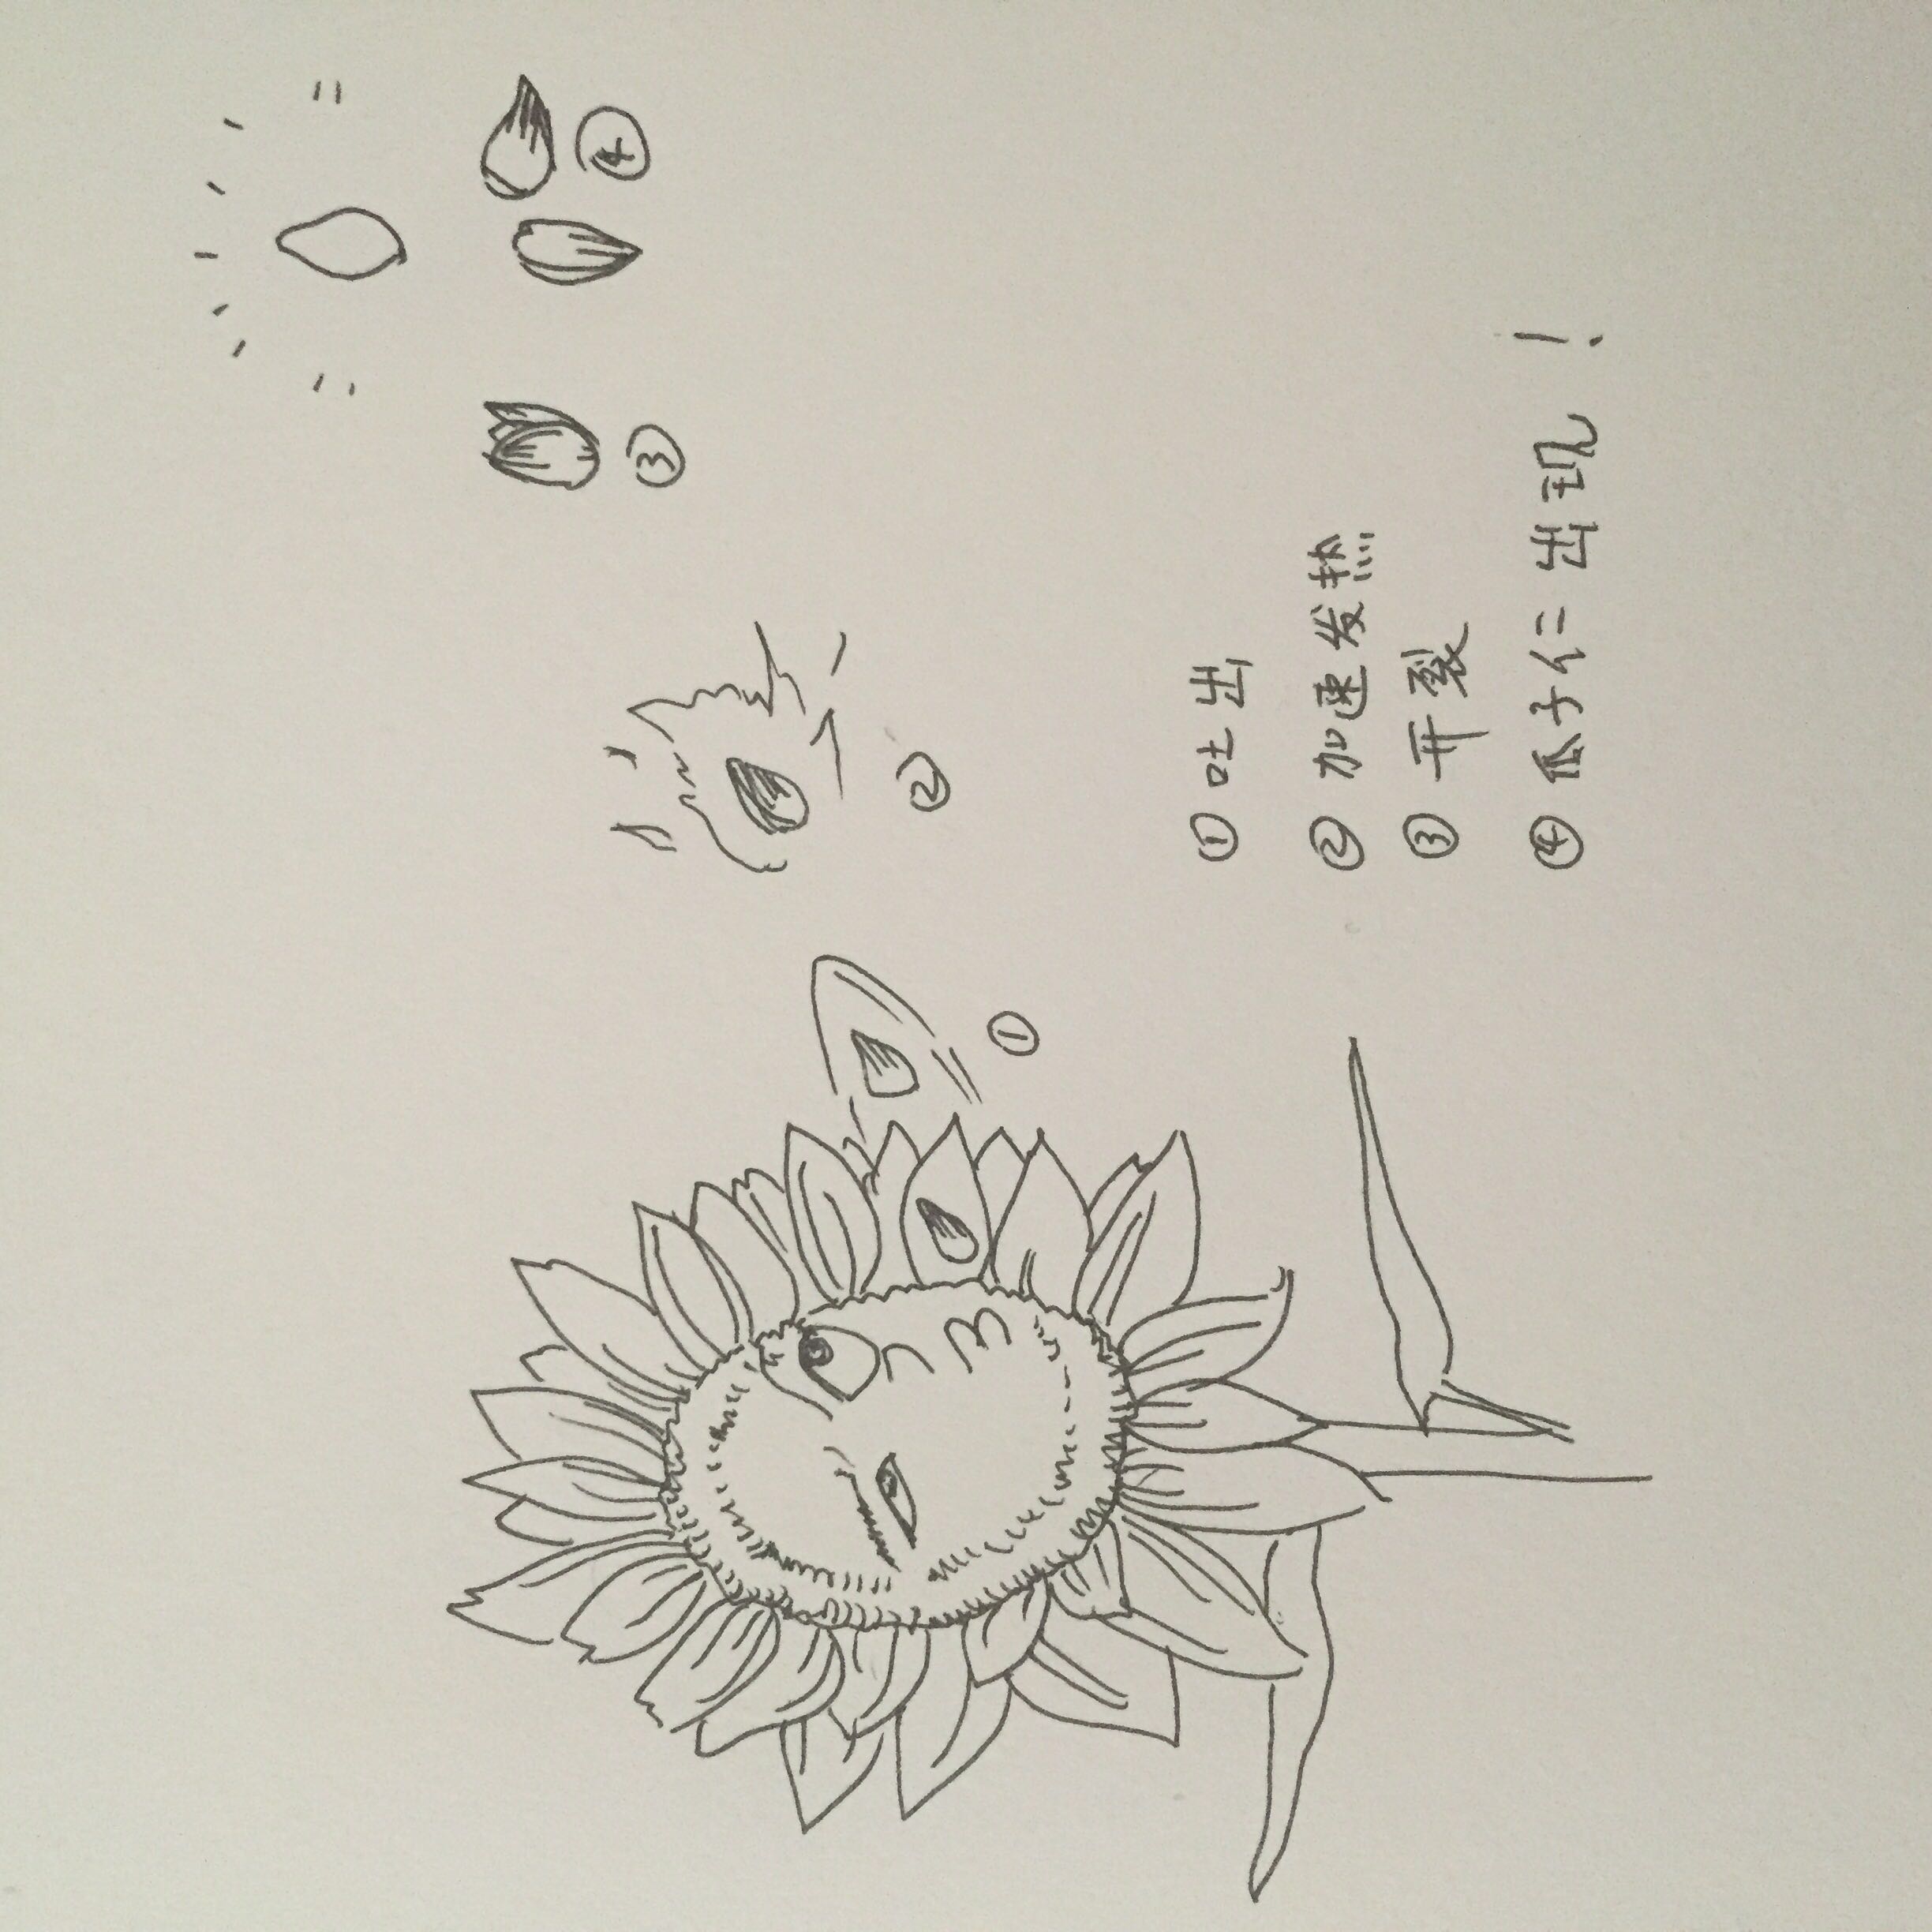 ④
③
②
①
① 吐出
② 加速发热
③ 开裂
④ 瓜子仁 出现！